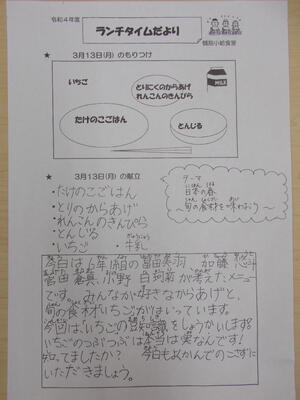 令和４年度
ランチタイムだより
★
３月１３日(月) のもりつけ
いちご
とりにくのからあげ
れんこんのきんぴら
MILK
たけのこごはん
とんじる
★
３月１３日(月) の献立
・たけのこごはん
・とりのからあげ
・れんこんのきんぴら
・とんじる
・いちご ・牛乳
テーマ
日本の春
〜旬の食材を味わおう〜
今日は6年1組の
考えたメニュー
です。みんなが好きなからあげと、
旬の食材いちごがはいっています。
今回は、いちごの豆知識をしょうかいします。
いちごのつぶつぶは本当は実なんです!
知ってましたか? 今日もよくかんでのこさずに
いただきましょう。